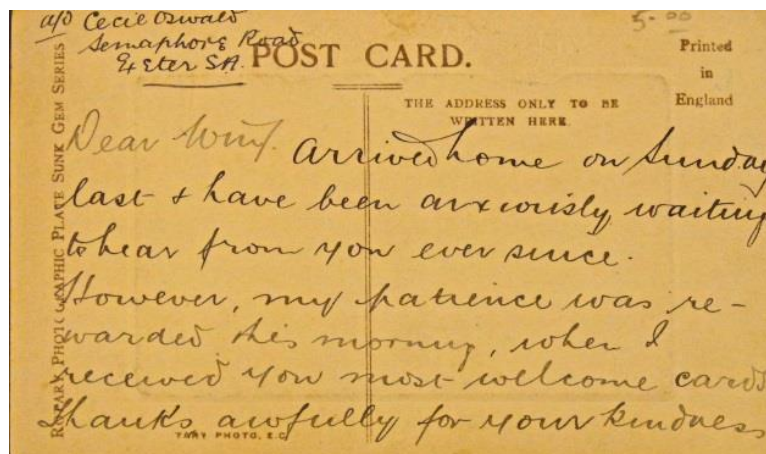 a/o Cecil Oswald
Semaphore Road
Exeter SA.
5-00
POST CARD.
Printed
in
England
THE ADDRESS ONLY TO BE
WRITTEN HERE.
ROTARY PHOTOGRAPHIC PLATE SUNK GEM SERIES
Dear Winf. Arrived home on Sunday
last & have been anxiously waiting
to hear from you ever since.
However, my patience was re-
warded this morning, when I
received you most welcome cards
thanks awfully for your kindness
TARY PHOTO, E.C.